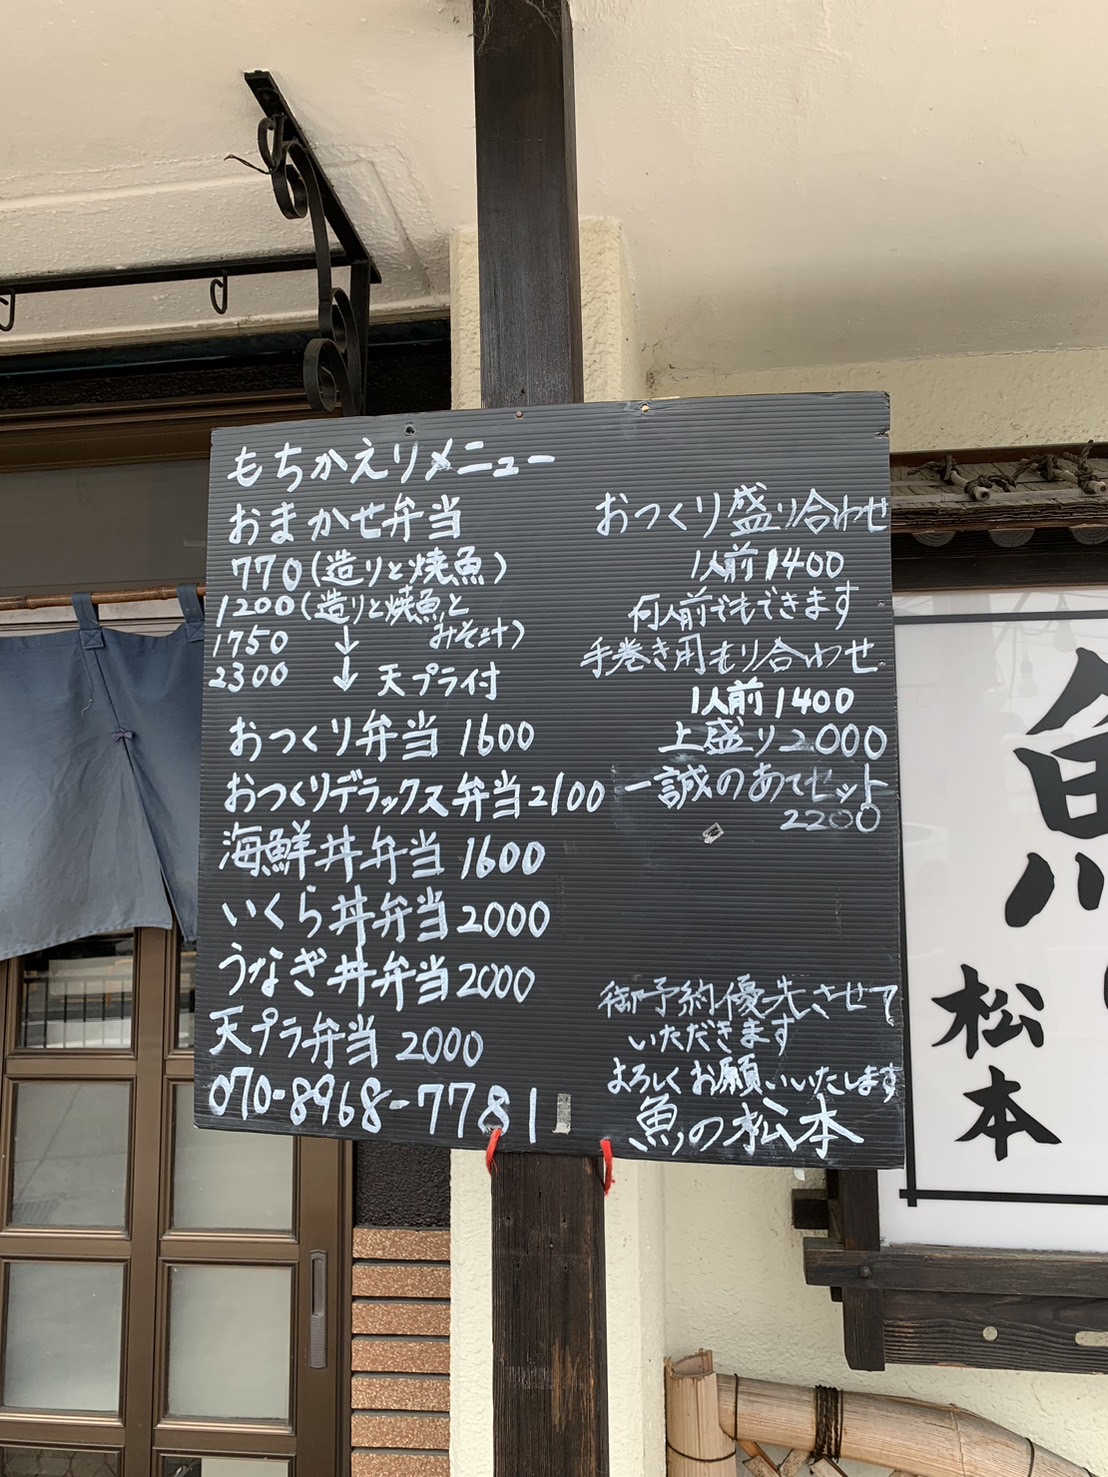 もちかえりメニュー
おまかせ弁当
770(造りと焼魚)
1200(造りと焼魚と
みそ汁)
1750 ↓
2300 ↓ 天プラ付
おつくり弁当 1600
おつくりデラックス弁当2100
海鮮丼弁当 1600
いくら丼弁当 2000
うなぎ丼弁当 2000
天プラ弁当 2000
070-8968-7781
おつくり盛り合わせ
1人前1400
何人前でもできます
手巻き用もり合わせ
1人前1400
上盛り2000
一誠のあてセット
2200
御予約優先させて
いただきます
よろしくお願いいたします
魚の松本
魚の
松本